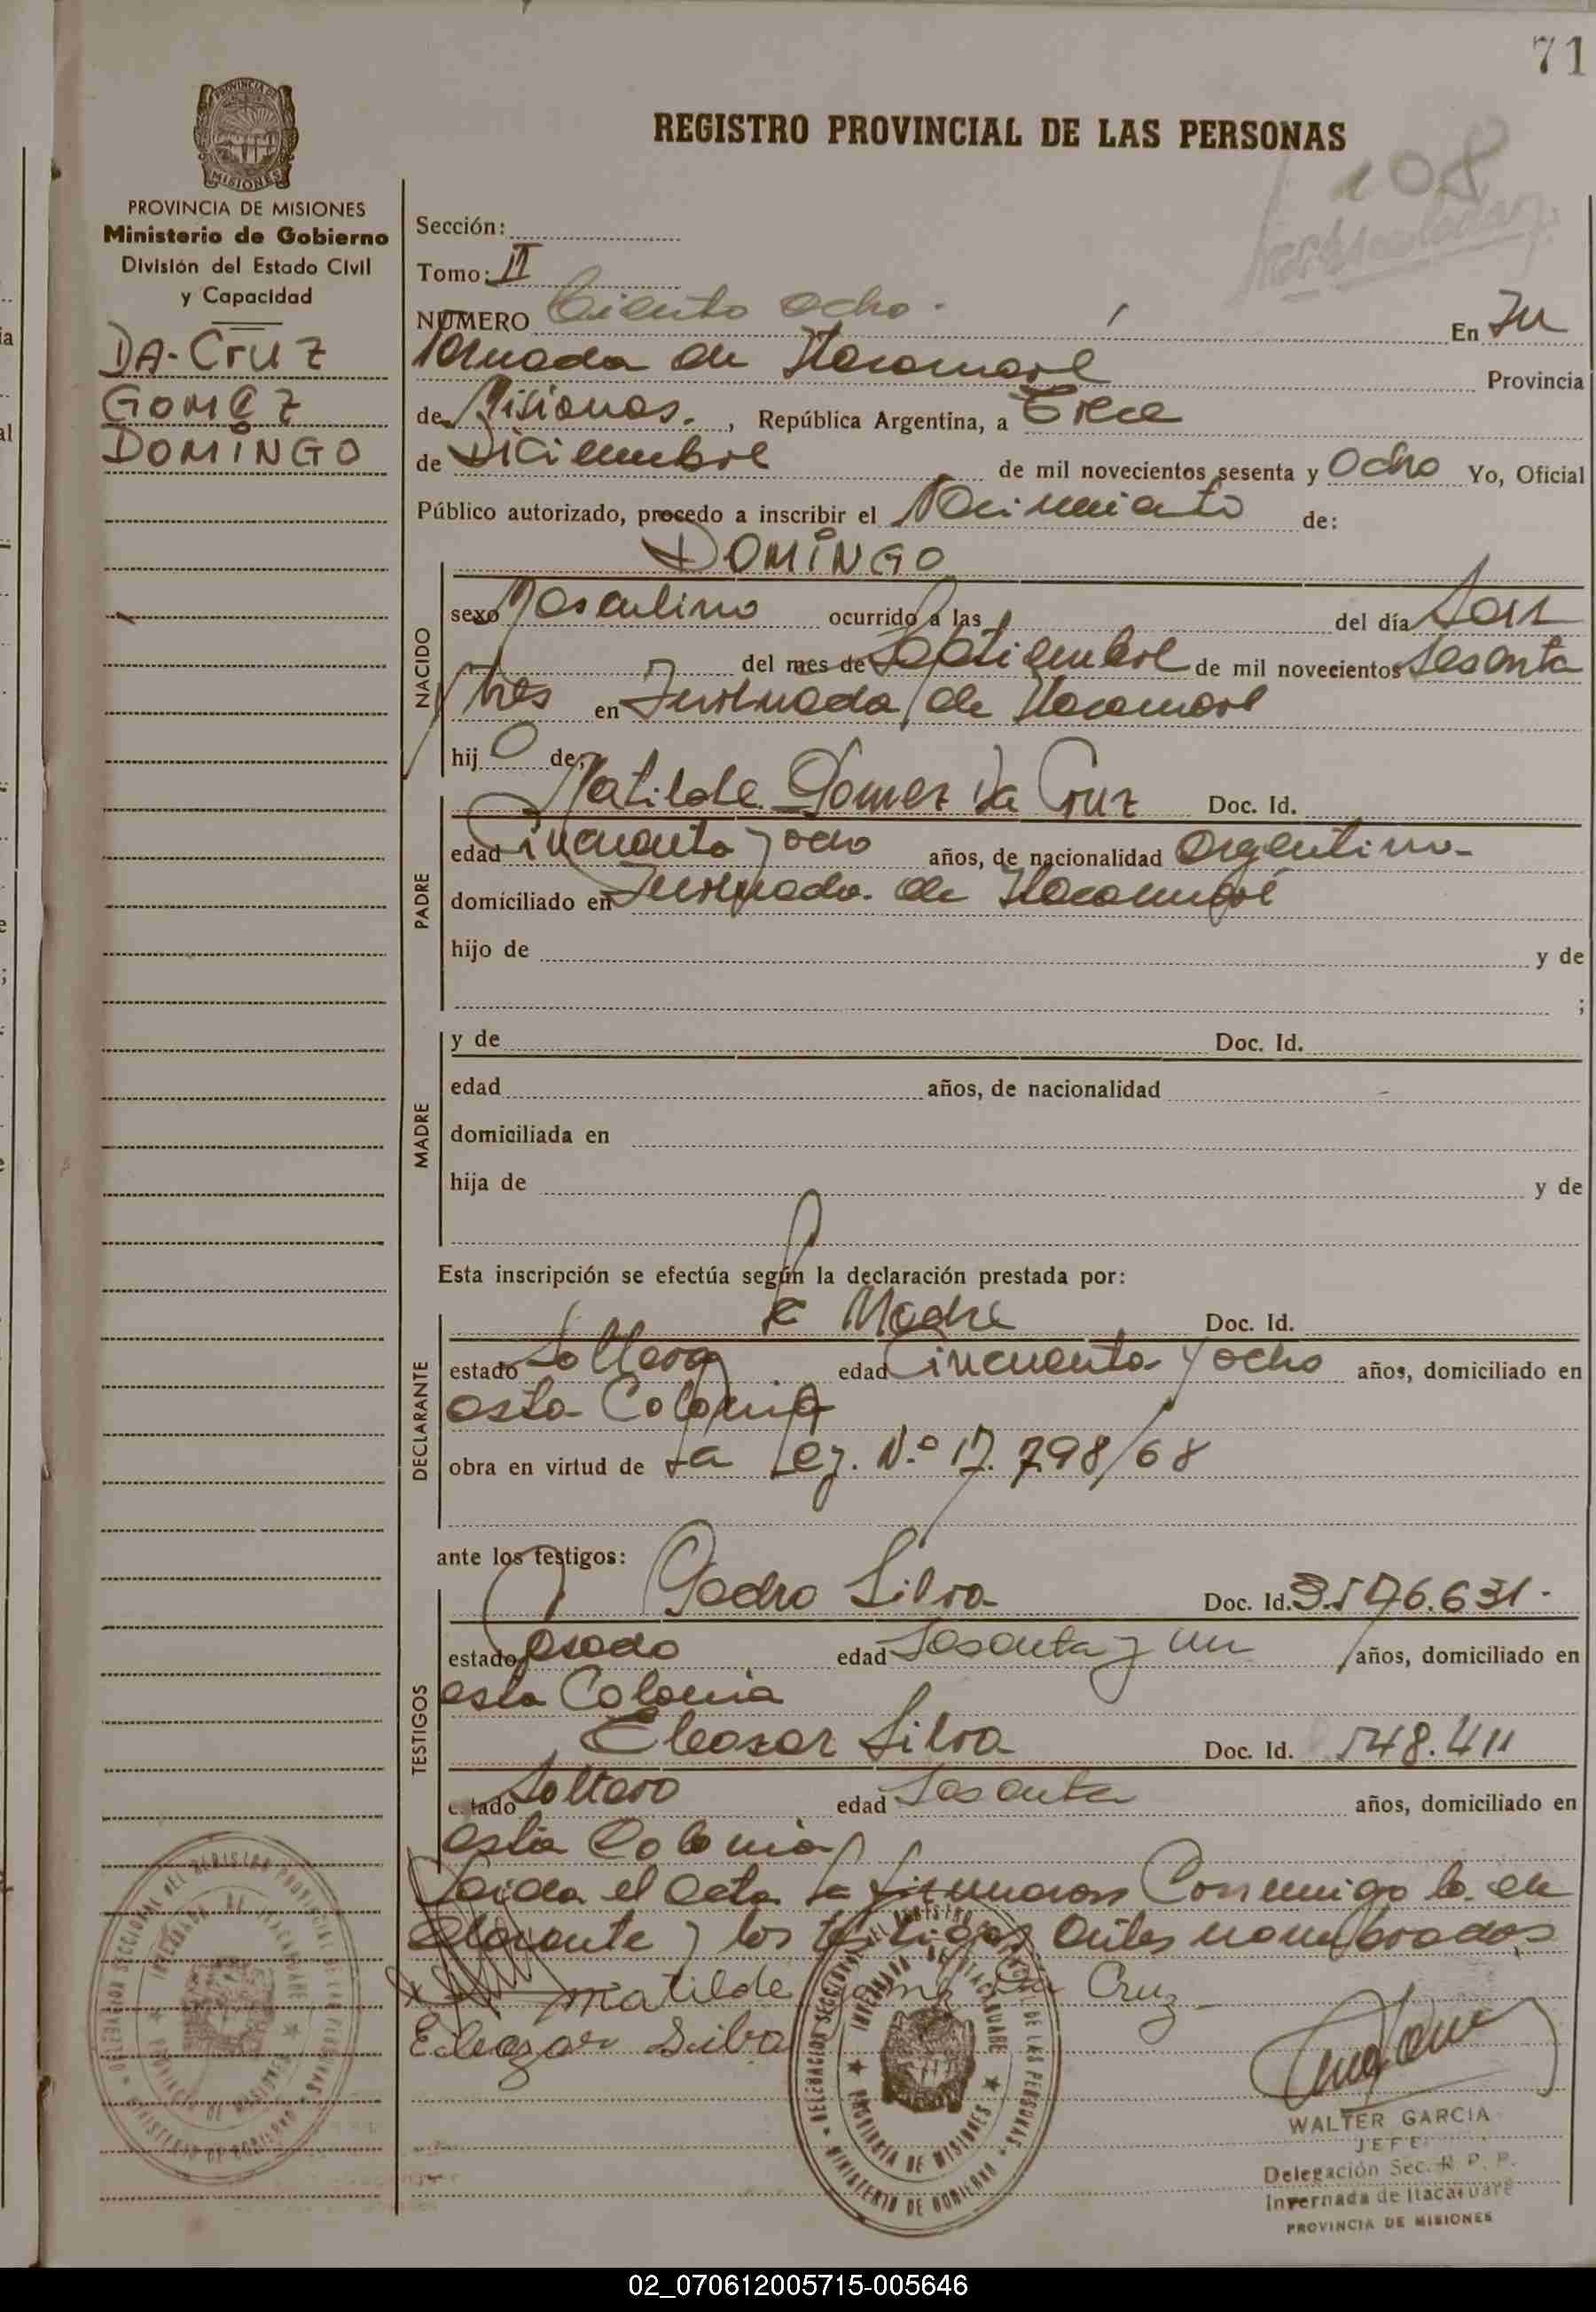 71
PROVINCIA DE MISIONES
PROVINCIA DE MISIONES
Ministerio de Gobierno
División del Estado Civil
y Capacidad
DA-CruZ
GomeZ
DOMiNGO
REGISTRO PROVINCIAL DE LAS PERSONAS
108
Sección:
Tomo: II
NÚMERO Ciento Ocho. En In
vernada de Itacaruaré Provincia
de Misiones. , República Argentina, a Trece
de Diciembre de mil novecientos sesenta y Ocho Yo, Oficial
Público autorizado, procedo a inscribir el Nacimiento de:
NACIDO
DOMiNGO
sexo Masculino ocurrido a las del día
del mes de Septiembre de mil novecientos Sesenta
y tres en Invernada de Itacaruaré
hij o de:
PADRE
Matilde Gomez Da Cruz Doc. Id.
edad Cincuenta y ocho años, de nacionalidad Argentina-
domiciliado en Invernada de Itacaruaré
hijo de y de
;
MADRE
y de Doc. Id.
edad años, de nacionalidad
domiciliada en
hija de y de
Esta inscripción se efectúa según la declaración prestada por:
DECLARANTE
la Madre Doc. Id.
estado Soltera edad Cincuenta y ocho años, domiciliado en
esta Colonia
obra en virtud de La Ley. N.º 17.798/68
ante los testigos:
TESTIGOS
Pedro Silva Doc. Id. 3.576.631-
estado Casado edad Sesenta y un años, domiciliado en
esta Colonia
Eleasar Silva Doc. Id. 548.411
estado Soltero edad Sesenta años, domiciliado en
esta Colonia
Leida el Acta la firmaron Conmigo la de
clarante y los testigos Antes nombrados
Matilde Gomez Da Cruz
Eleazar Silva
DELEGACION SECCIONAL DEL REGISTRO PROVINCIAL DE LAS PERSONAS
INVERNADA DE ITACARUARE
PROVINCIA DE MISIONES
MINISTERIO DE GOBIERNO
WALTER GARCIA
JEFE
Delegación Sec. R. P. P.
Invernada de Itacaruaré
PROVINCIA DE MISIONES
02_070612005715-005646